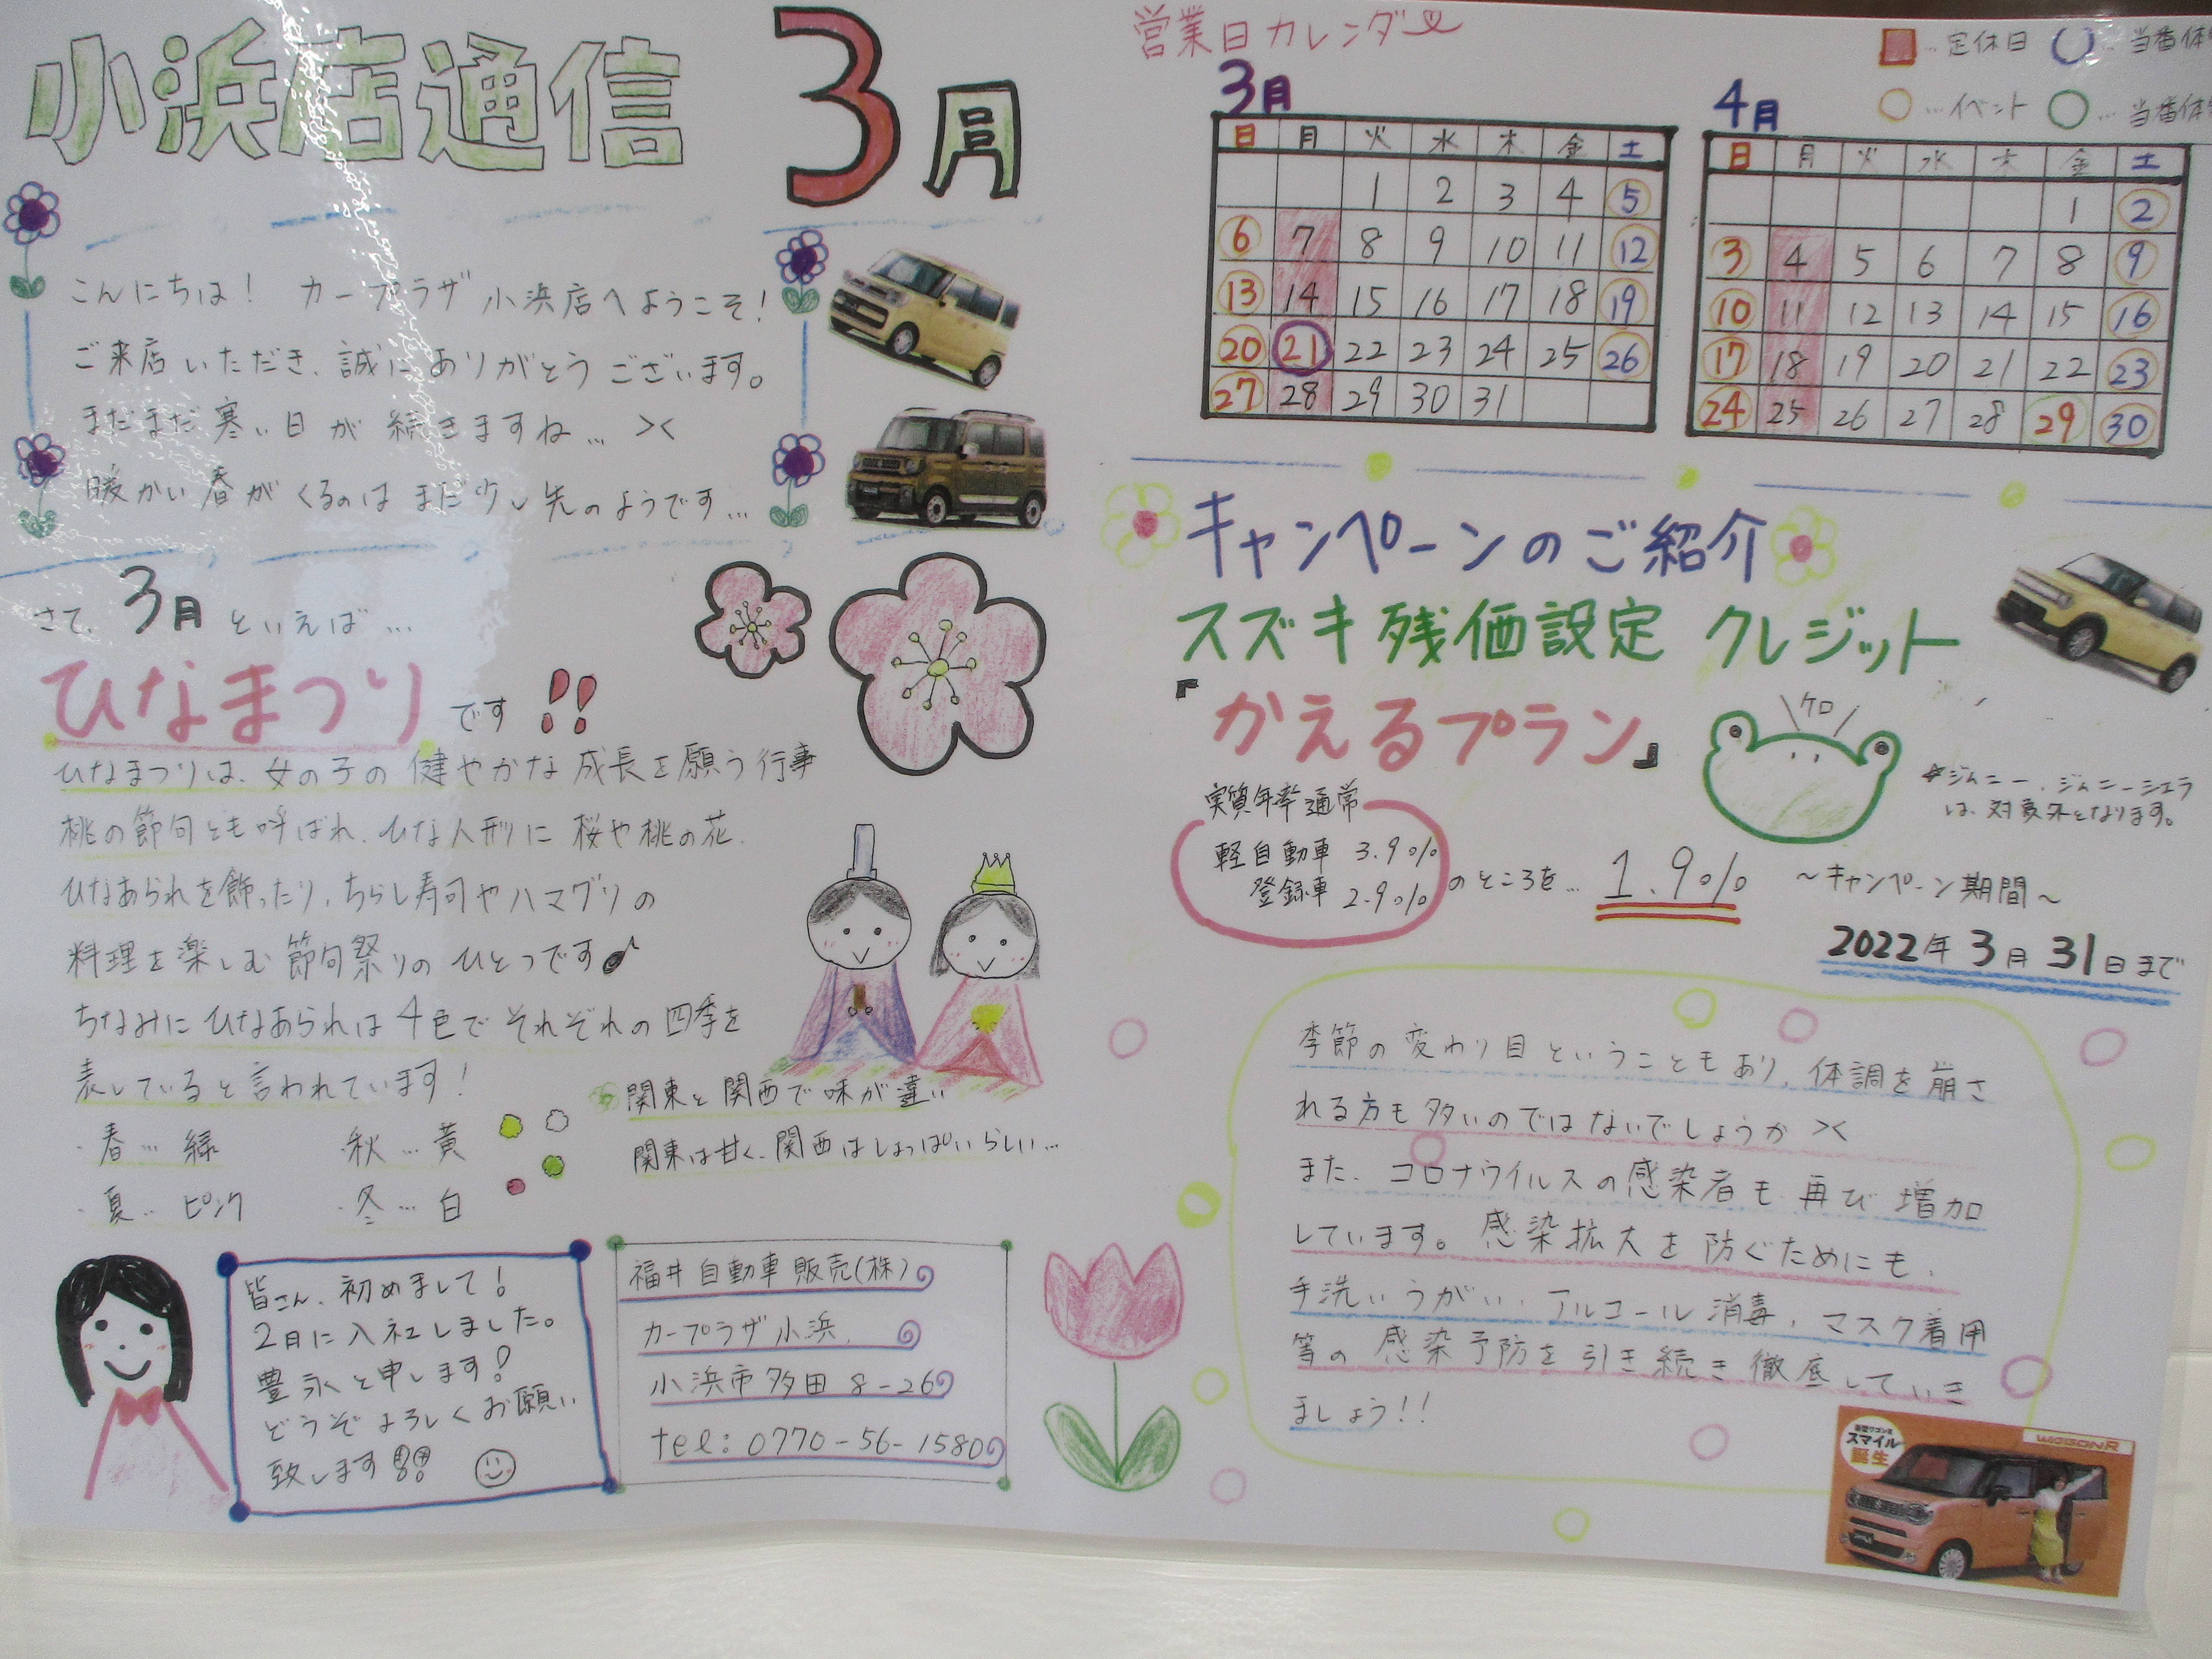 小浜店通信 3月
こんにちは! カープラザ小浜店へようこそ!
ご来店いただき、誠にありがとうございます。
まだまだ寒い日が続きますね… ><
暖かい春がくるのはまだ少し先のようです…
さて、3月といえば…
ひなまつりです!!
ひなまつりは、女の子の健やかな成長を願う行事
桃の節句とも呼ばれ、ひな人形に桜や桃の花、
ひなあられを飾ったり、ちらし寿司やハマグリの
料理を楽しむ節句祭りのひとつです♪
ちなみにひなあられは4色でそれぞれの四季を
表していると言われています!
・春…緑 ・秋…黄
・夏…ピンク ・冬…白
関東と関西で味が違い
関東は甘く、関西はしょっぱいらしい…
皆さん、初めまして!
2月に入社しました。
豊永と申します!
どうぞよろしくお願い
致します!!
福井自動車販売(株)
カープラザ小浜
小浜市多田8-26
tel:0770-56-1580
営業日カレンダー
…定休日 …当番休
…イベント …当番休
3月
日 月 火 水 木 金 土
1 2 3 4 5
6 7 8 9 10 11 12
13 14 15 16 17 18 19
20 21 22 23 24 25 26
27 28 29 30 31
4月
日 月 火 水 木 金 土
1 2
3 4 5 6 7 8 9
10 11 12 13 14 15 16
17 18 19 20 21 22 23
24 25 26 27 28 29 30
キャンペーンのご紹介
スズキ残価設定クレジット
『かえるプラン』
ケロ
☆ジムニー、ジムニーシエラ
は、対象外となります。
実質年率通常
軽自動車 3.9%
登録車 2.9%
のところを… 1.9%
～キャンペーン期間～
2022年3月31日まで
季節の変わり目ということもあり、体調を崩さ
れる方も多いのではないでしょうか ><
また、コロナウイルスの感染者も再び増加
しています。感染拡大を防ぐためにも、
手洗いうがい、アルコール消毒、マスク着用
等の感染予防を引き続き徹底していき
ましょう!!
スマイル
誕生
WAGONR